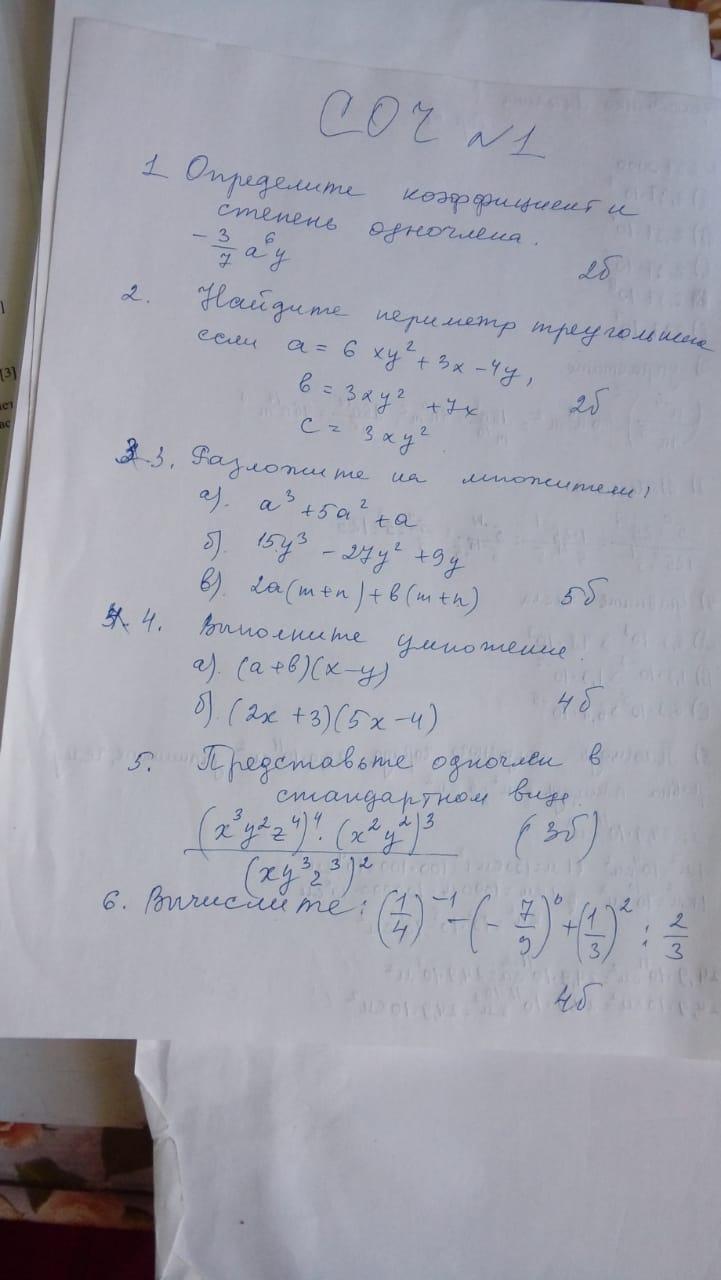 СОЧ №1
1 Определите коэффициент и
степень одночлена.
-3/7 a⁶y
2б
2. Найдите периметр треугольника
если a = 6xy² + 3x - 4y,
в = 3xy² + 7x
2б
c = 3xy²
3. Разложите на множители:
а). a³ + 5a² + a
б). 15y³ - 27y² + 9y
в). 2a(m+n) + в(m+n)
5б
4. Выполните умножение.
а). (a+в)(x-y)
4б
б). (2x + 3)(5x - 4)
5. Представьте одночлен в
стандартном виде.
(x³y²z⁴)⁴ · (x²y²)³ (3б)
(xy³z³)²
6. Вычислите: (1/4)⁻¹ - (-7/9)⁰ + (1/3)² : 2/3
4б
[3]